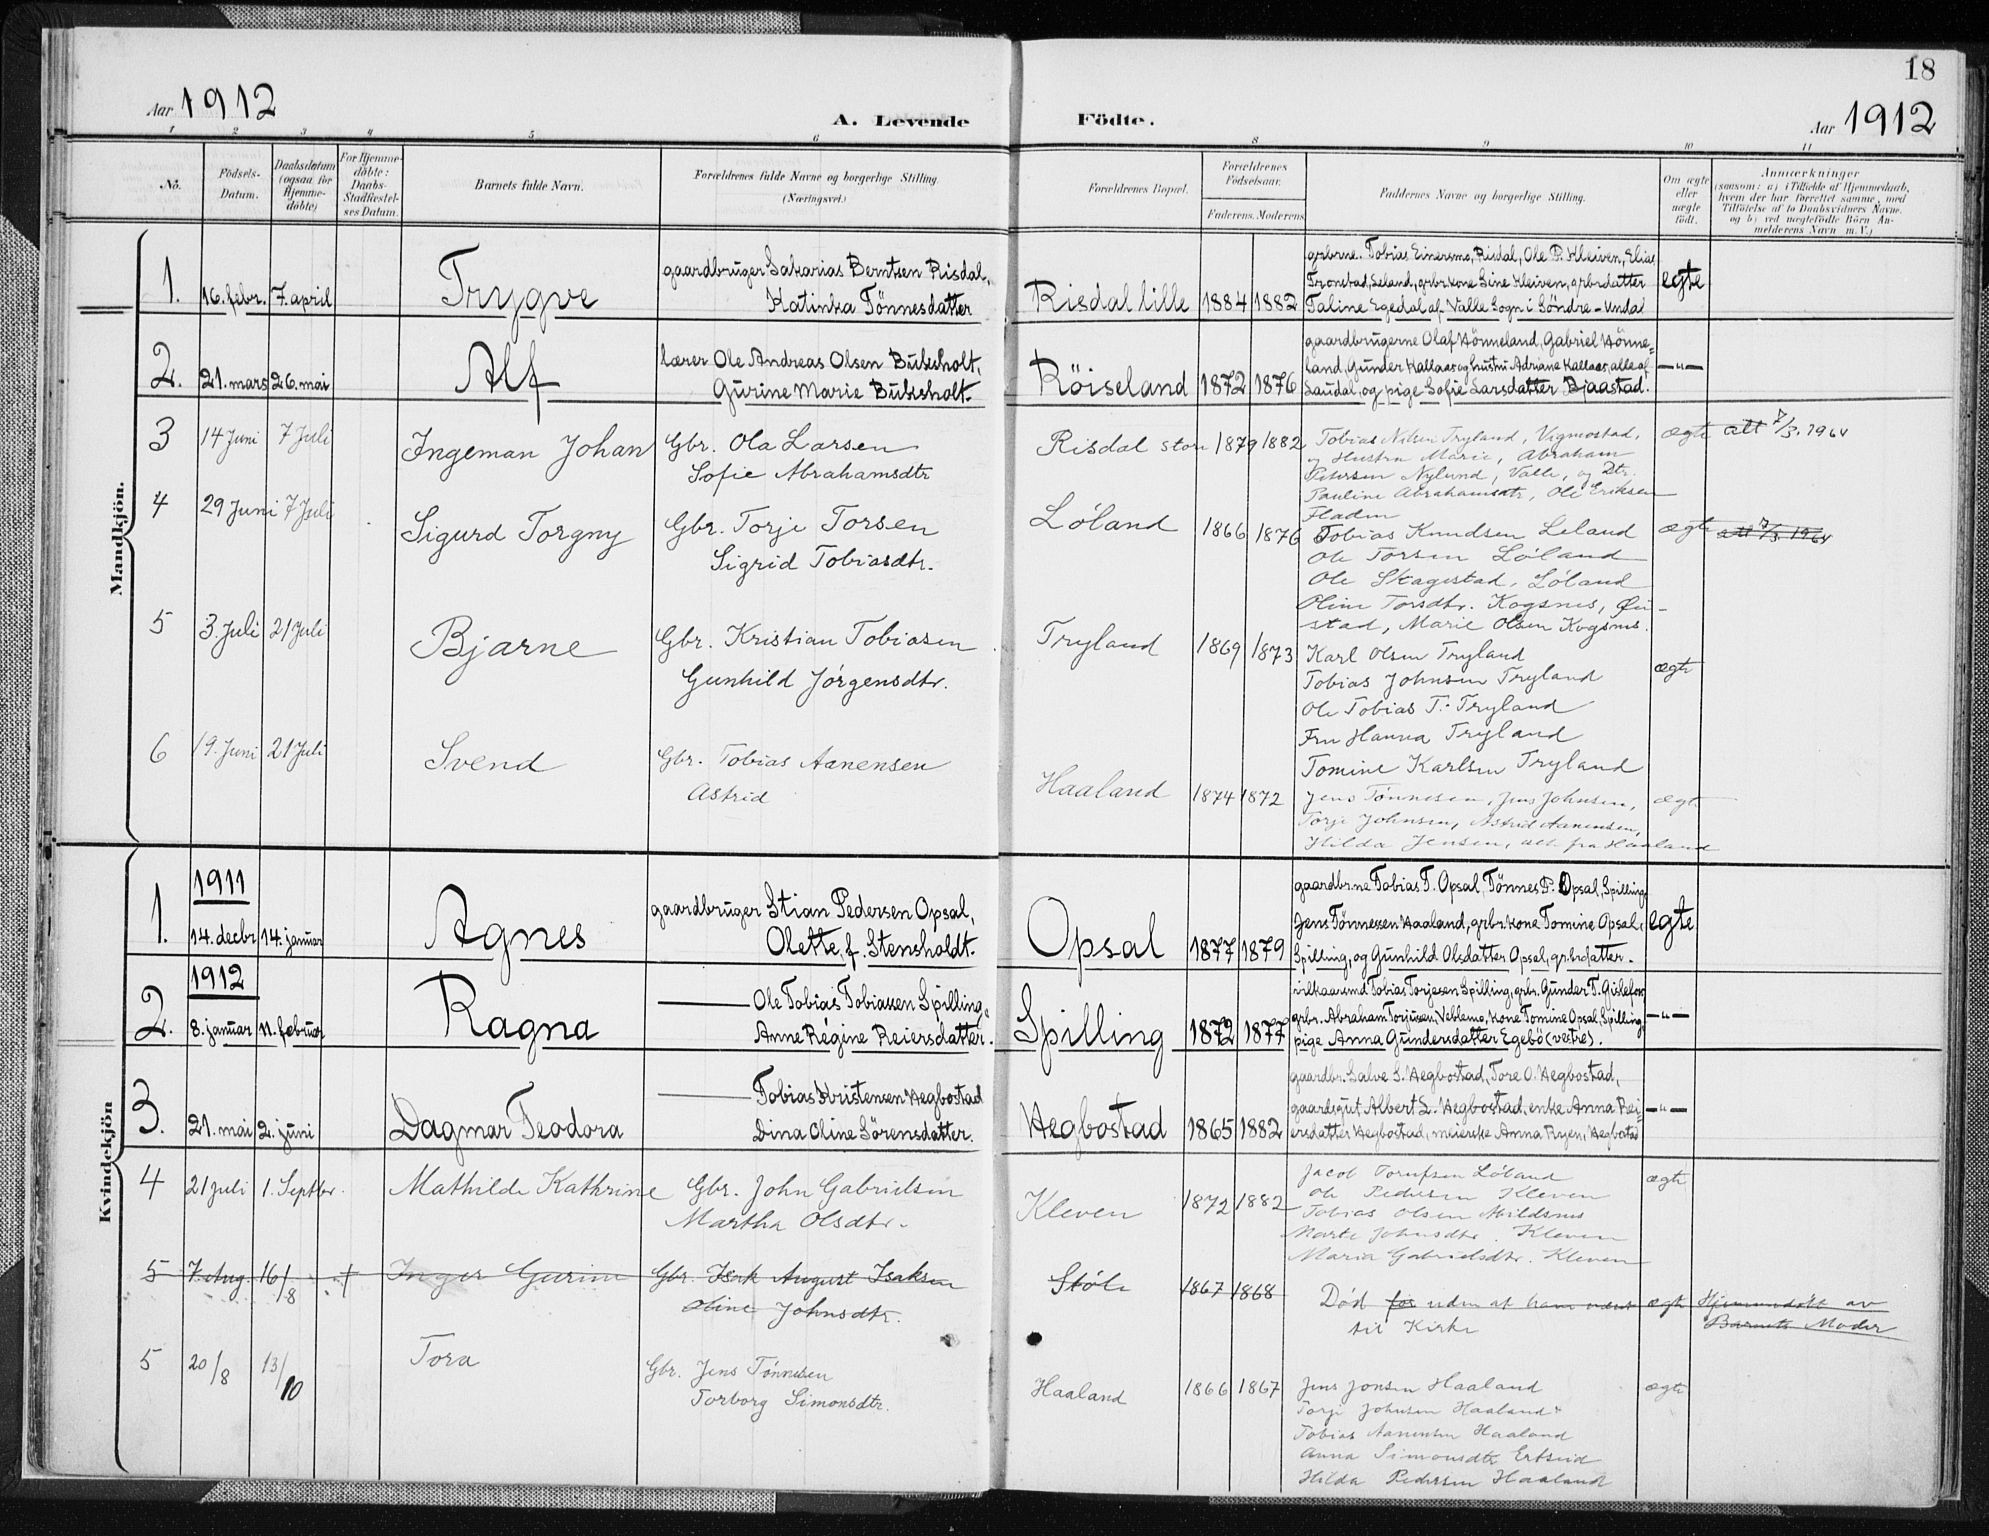 18
Aar 1912
A. Levende Födte.
Aar 1912
1 2 3 4 5 6 8 9 10 11
No.
Födsels-
Datum.
Daabsdatum
(ogsaa for
Hjemme-
döbte)
For Hjemme-
döbte:
Daabs-
Stadfæstel-
ses Datum.
Barnets fulde Navn.
Forældrenes fulde Navne og borgerlige Stilling
(Næringsvei.)
Forældrenes Bopæl.
Forældrenes
Födselsaar.
Faderens. Moderens.
Faddernes Navne og borgerlige Stilling.
Om ægte
eller
uægte
födt.
Anmærkninger
(saasom: a) i Tilfælde af Hjemmedaab,
hvem der har forrettet samme, med
Tilföielse af to Daabsvidners Navne.
og b) ved uægtefödte Börn An-
melderens Navn m. V.)
Mandkjön.
1. 16. febr. 7. april
Trygve
gaardbruger Sakarias Berntsen Risdal,
Katinka Tönnesdatter
Risdal lille 1884 1882
grbrne. Tobias Einersmo, Risdal, Ole P. Kleiven, Elias
Tronstad, Seland, grbr. kone Sine Kleiven, grbrdatter
Taline Egedal af Valle Sogn i Söndre-Undal
egte
2. 21. mars 26. mai
Alf
lærer Ole Andreas Olsen Buksholt,
Gurine Marie Buksholt.
Röiseland 1872 1876
gaardbrugerne Olaf Hönneland, Gabriel Hönne=
land, Gunder Kallaas og hustru Adriane Kallaas, alle af
Laudal, og pige Sofie Larsdatter Bjaastad.
-"-
3 14 Juni 7 Juli
Ingeman Johan
Gbr. Ola Larsen
Sofie Abrahamsdtr
Risdal store 1879 1882
Tobias Nilsen Tryland, Vigmostad,
og Hustru Marie, Abraham
Petersen Nylund, Valle, og Dtr.
Pauline Abrahamsdtr, Ole Eriksen
Fladen
ægte att 7/3. 1964
4 29 Juni 7 Juli
Sigurd Torgny
Gbr. Torje Torsen
Sigrid Tobiasdtr.
Löland 1866 1876
Tobias Knudsen Leland
Ole Torsen Löland
Ole Skagestad, Löland
Oline Torsdtr. Kogsnes, Öi-
stad, Marie Olsen Kogsnes.
ægte att 7/3 1964
5 3. Juli 21 Juli
Bjarne
Gbr. Kristian Tobiasen
Gunhild Jörgensdtr.
Tryland 1869 1873
Karl Olsen Tryland
Tobias Johnsen Tryland
Ole Tobias T. Tryland
Fru Hanna Tryland
Tomine Karlsen Tryland
ægte
6 19. Juni 21 Juli
Svend
Gbr. Tobias Aanensen
Astrid
Haaland 1874 1872
Jens Tönnesen, Jens Johnsen,
Torje Johnsen, Astrid Aanensen,
Hilda Jensen, alle fra Haaland
ægte
Kvindekjön
1911
1. 14. decbr 14. januar
Agnes
gaardbruger Stian Pedersen Opsal,
Olette, f. Stensholdt.
Opsal 1877 1879
gaardbrne Tobias T. Opsal, Tönnes P. Opsal, Spilling,
Jens Tönnessen Haaland, grbr. kone Tomine Opsal,
Spilling, og Gunhild Olsdatter Opsal, grbrdatter.
egte
1912
2. 8. januar 11. februar
Ragna
Ole Tobias Tobiassen Spilling,
Anne Regine Reiersdatter.
Spilling 1872 1877
vilkaarsmd Tobias Torjesen Spilling, grbr. Gunder T. Gislefoss
grbr. Abraham Torjusen, Veblemo, kone Tomine Opsal, Spilling,
pige Anna Gundersdatter Egebö (vestre).
-"-
3. 21. mai 2. juni
Dagmar Teodora
Tobias Kristensen Hegbostad
Dina Oline Sörensdatter.
Hegbostad 1865 1882
gaardbr. Salve S. Hegbostad, Tore O. Hegbostad,
gaardsgut Albert L. Hegbostad, enke Anna Rei=
ersdatter Hegbostad, meierske Anna Ryen, Hegbostad
-"-
4 21 Juli 1. Septbr.
Mathilde Kathrine
Gbr. John Gabrielsen
Martha Olsdtr.
Kleven 1872 1882
Jacob Torufsen Löland
Ole Pedersen Kleven
Tobias Olsen
Marte Johnsdtr. Kleven
Maria Gabrielsdtr. Kleven
ægte
5 7. Aug. 16/8 +
Inger Gurine
Gbr. Isak August Isaksen
Oline Johnsdtr.
Stöle 1867 1868
Död før uden at have været
til Kirke
ægte
Hjemmedöbt av
Barnets Moder
5 20/8 13/10
Tora
Gbr. Jens Tönnesen
Torborg Simonsdtr.
Haaland 1866 1867
Jens Jonsen Haaland
Torje Johnsen Haaland
Tobias Aanensen Haaland
Anna Simonsdtr Ertseid
Hilda Pedersen Haaland
ægte